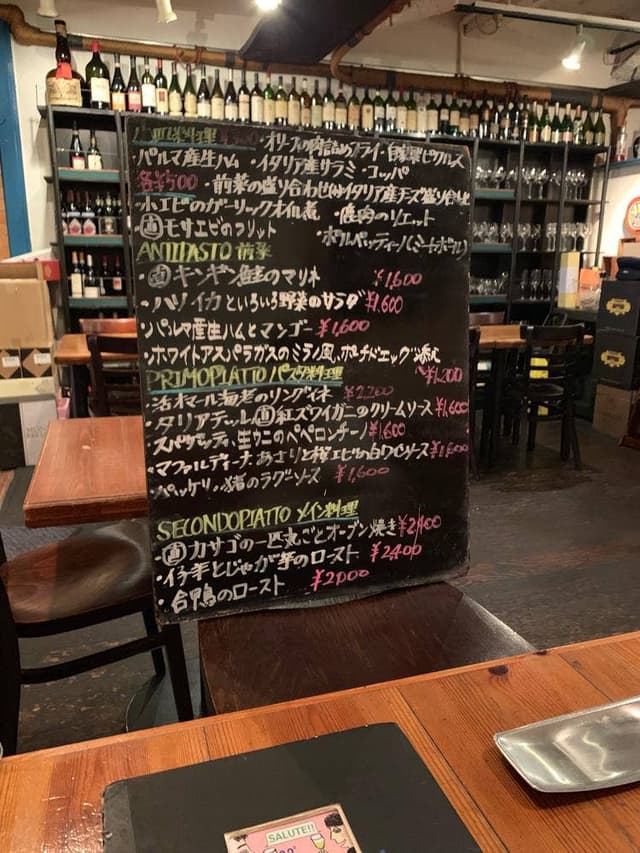 ・オリーブの肉詰めフライ・自家製ピクルス
・パルマ産生ハム ・イタリア産サラミ・コッパ
各¥700 ・前菜の盛り合わせ ・イタリア産チーズ盛り合わせ
・小エビのガーリックオイル煮 ・鹿肉のリエット
・直モサエビのフリット ・ポルペッティーハ(ミートボール)
ANTIPASTO 前菜
・直キンギン鮭のマリネ ¥1,600
・ハリイカといろいろ野菜のサラダ ¥1,600
・パルマ産生ハムとマンゴー ¥1,600
・ホワイトアスパラガスのミラノ風、ポーチドエッグ添え ¥1,200
PRIMOPIATTO パスタ料理
・活オマール海老のリングイネ ¥2,200
・タリアテッレ 直紅ズワイガニのクリームソース ¥1,600
・スパゲッティ、生ウニのペペロンチーノ ¥1,600
・マファルディーナ、あさりと桜エビの白ワインソース ¥1,600
・パッケリ、猪のラグーソース ¥1,600
SECONDOPIATTO メイン料理
・直カサゴの一匹丸ごとオーブン焼き ¥2,400
・仔羊とじゃが芋のロースト ¥2,400
・合鴨のロースト ¥2,000
SALUTE!!